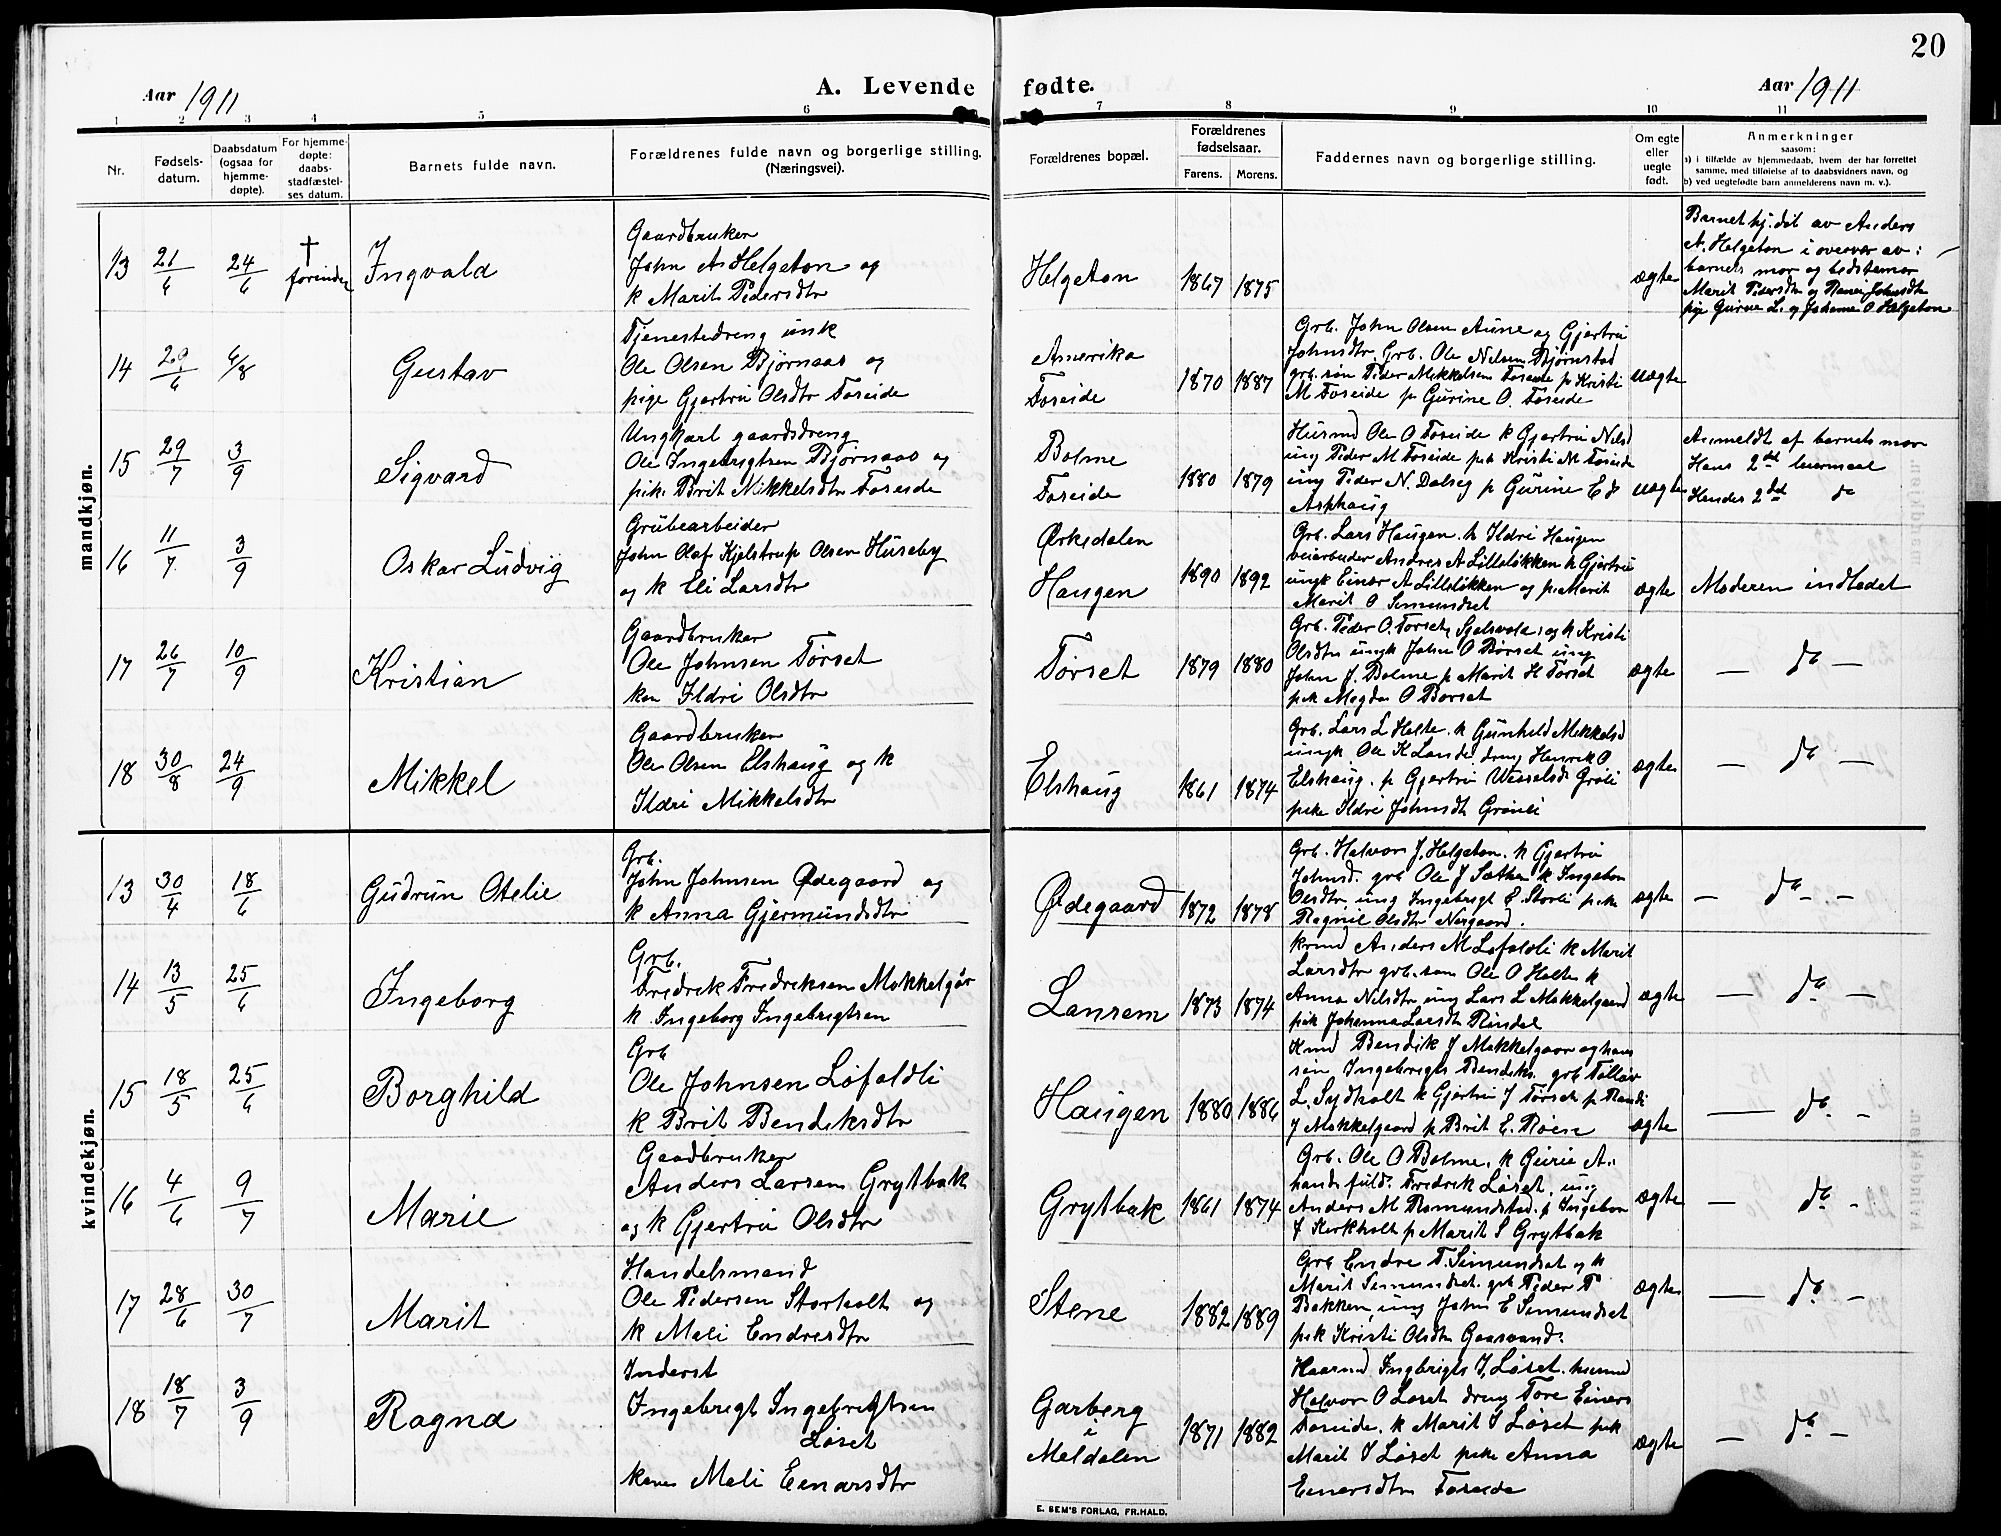 20
Aar 1911
A. Levende fødte.
Aar 1911
1 2 3 4 5 6 7 8 9 10 11
Nr.
Fødsels-
datum.
Daabsdatum
(ogsaa for
hjemme-
døpte).
For hjemme-
døpte:
daabs-
stadfæstel-
ses datum.
Barnets fulde navn.
Forældrenes fulde navn og borgerlige stilling.
(Næringsvei).
Forældrenes bopæl.
Forældrenes
fødselsaar.
Farens. Morens.
Faddernes navn og borgerlige stilling.
Om egte
eller
uegte
født.
Anmerkninger
saasom:
a) i tilfælde av hjemmedaab, hvem der har forrettet
samme, med tilføielse af to daabsvidners navn, og
b) ved uegtefødte barn anmelderens navn m. v.).
mandkjøn.
13 21/6 24/6 † forinden Ingvald
Gaardbruker
John A Helgeton og
k Marit Pedersdtr
Helgeton 1867 1875 ægte
Barnet hj. døt av Anders
A. Helgeton i overvær av:
barnets mor og bedstemor
Marit Pedersdtr og Johnsdtr
pige Gurine L. og Johanne O Helgeton
14 29/6 6/8 Gustav
Tjenestedreng unk
Ole Olsen Bjørnaas og
pige Gjertru Olsdtr Foseide
Amerika
Foseide
1870 1887
Grb. John Olsen Aune og Gjertru
Johnsdtr. Grb. Ole Nelsen Bjørnstad
grb. søn Peder Mikkelsen Foseide p Kristi
M Foseide p Gurine O. Foseide
uægte
15 29/7 3/9 Sigvard
Ungkarl gaardsdreng
Ole Ingebrigtsen Bjørnaas og
pike Brit Mikkelsdtr Foseide
Bolme
Foseide
1880 1879
Husmd Ole O Foseide k Gjertru Nilsd
ung Peder M Foseide pik Kristi M Foseide
ung Peder N. Dalseg p Gurine E
Askhaug
uægte
Anmeldt af barnets mor
Hans 2det leiermaal
Hendes 2det do
16 11/7 3/9 Oskar Ludvig
Grubearbeider
John Olaf Kjelstrup Olsen Huseby
og k Eli Larsdtr
Ørkedalen
Haugen
1890 1892
Grb. Lars Haugen. k Ildri Haugen
veiarbeider Andres A Lilleløkken k Gjertru
ungk Einar A Lilleløkken og p. Marit
Marit O Simundset
ægte
Moderen indledet
17 26/7 10/9 Kristian
Gaardbruker
Ole Johnsen Tørset
kon Ildri Olsdtr
Tørset 1879 1880
Grb. Peder O. Tørset, og k Kristi
Olsdtr ungk John O Børset ung
John J. Bolme p Marit H Tørset
pik Magda O Børset
ægte
— do —
18 30/8 24/9 Mikkel
Gaardbruker
Ole Olsen Elshaug og k
Ildri Mikkelsdtr
Elshaug 1861 1874
Grb. Lars L Holte. k Gunhild Mikkelsd
ungk Ole K Lande, dreng Henrik O
Elshaug. p Gjertru Wesselsd Grøli
pike Ildri Johnsdt Grønli
ægte
— do —
kvindekjøn.
13 30/4 18/6 Gudrun Otelie
Grb.
John Johnsen Ødegaard og
k Anna Gjermundsdtr
Ødegaard 1872 1878
Grb. Halvor J. Helgeton. k Gjertru
Johnsd. grb Ole J Sæther k Ingebor
Olsdtr. ung Ingebrigt E Storli pike
Ragnil Olsdtr Nergaard.
ægte
— do —
14 13/5 25/6 Ingeborg
Grb.
Fredrik Fredriksen Mokkelgår
k Ingeborg Ingebrigtsen
Lansem 1873 1874
krmd Anders M Løfaldli k Marit
Larsdtr grb. søn Ole O Holte k
Anna Nilsdtr ung Lars L Mokkelgaard
pik Johanna Larsdt Rindal
ægte
— do —
15 18/5 25/6 Borghild
Grb
Ole Johnsen Løfaldli
k Brit Bendiksdtr
Haugen 1880 1886
Kmd Bendik J Mokkelgaar og hans
søn Ingebrigt Bendiks. grb Tollav
L. Sydholt k Gjertru J Tørset p Randi
J Mokkelgaard p Brit E. Røen
ægte
— do —
16 4/6 9/7 Marie
Gaadbruker
Anders Larsen Grytbak
og k Gjertru Olsdtr
Grytbak 1861 1874
Grb. Ole O Bolme. k Guri A.
Fredrik Løset, ung
Anders M Romundstad. p Ingebor
J Kirkholt p Marit S Grytbak
ægte
— do —
17 28/6 30/7 Marit
Handelsmand
Ole Pedersen Storholt og
k Mali Endresdtr
Stene 1882 1889
Grb Endre T. Simundset og k
Marit Simundset. grb Peder P
Bakken, ung John E Simundset
pik Kristi Olsdtr Gaasvand.
ægte
— do —
18 18/7 3/9 Ragna
Inderst
Ingebrigt Ingebrigtsen
Løset
kone Mali Einarsdtr
Garberg
i
Meldalen
1871 1882
Haarmd Ingebrigt I. Løset. husmd
Halvor O Løset dreng Tore Einars
Foseide. k Marit I Løset pik
Marit I Løset pike Anna
Einarsdtr Foseide
ægte
— do —
E. SEM'S FORLAG, FR.HALD.